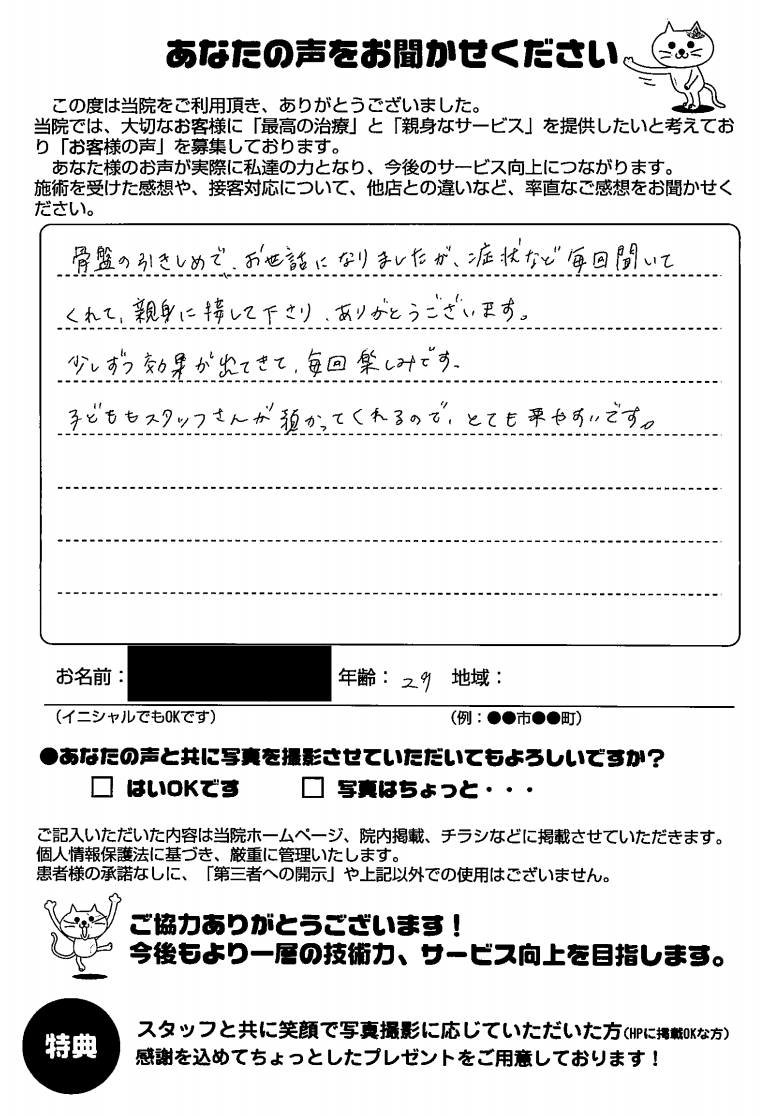 あなたの声をお聞かせください
この度は当院をご利用頂き、ありがとうございました。
当院では、大切なお客様に「最高の治療」と「親身なサービス」を提供したいと考えてお
り「お客様の声」を募集しております。
あなた様のお声が実際に私達の力となり、今後のサービス向上につながります。
施術を受けた感想や、接客対応について、他店との違いなど、率直なご感想をお聞かせく
ださい。
骨盤の引きしめで、お世話になりましたが、症状など毎回聞いて
くれて、親身に接して下さり、ありがとうございます。
少しずつ効果が出てきて、毎回楽しみです。
子どももスタッフさんが預かってくれるので、とても来やすいです。
お名前： 年齢：29 地域：
（イニシャルでもOKです） （例：●●市●●町）
●あなたの声と共に写真を撮影させていただいてもよろしいですか？
□ はいOKです □ 写真はちょっと・・・
ご記入いただいた内容は当院ホームページ、院内掲載、チラシなどに掲載させていただきます。
個人情報保護法に基づき、厳重に管理いたします。
患者様の承諾なしに、「第三者への開示」や上記以外での使用はございません。
ご協力ありがとうございます！
今後もより一層の技術力、サービス向上を目指します。
特典
スタッフと共に笑顔で写真撮影に応じていただいた方(HPに掲載OKな方)
感謝を込めてちょっとしたプレゼントをご用意しております！